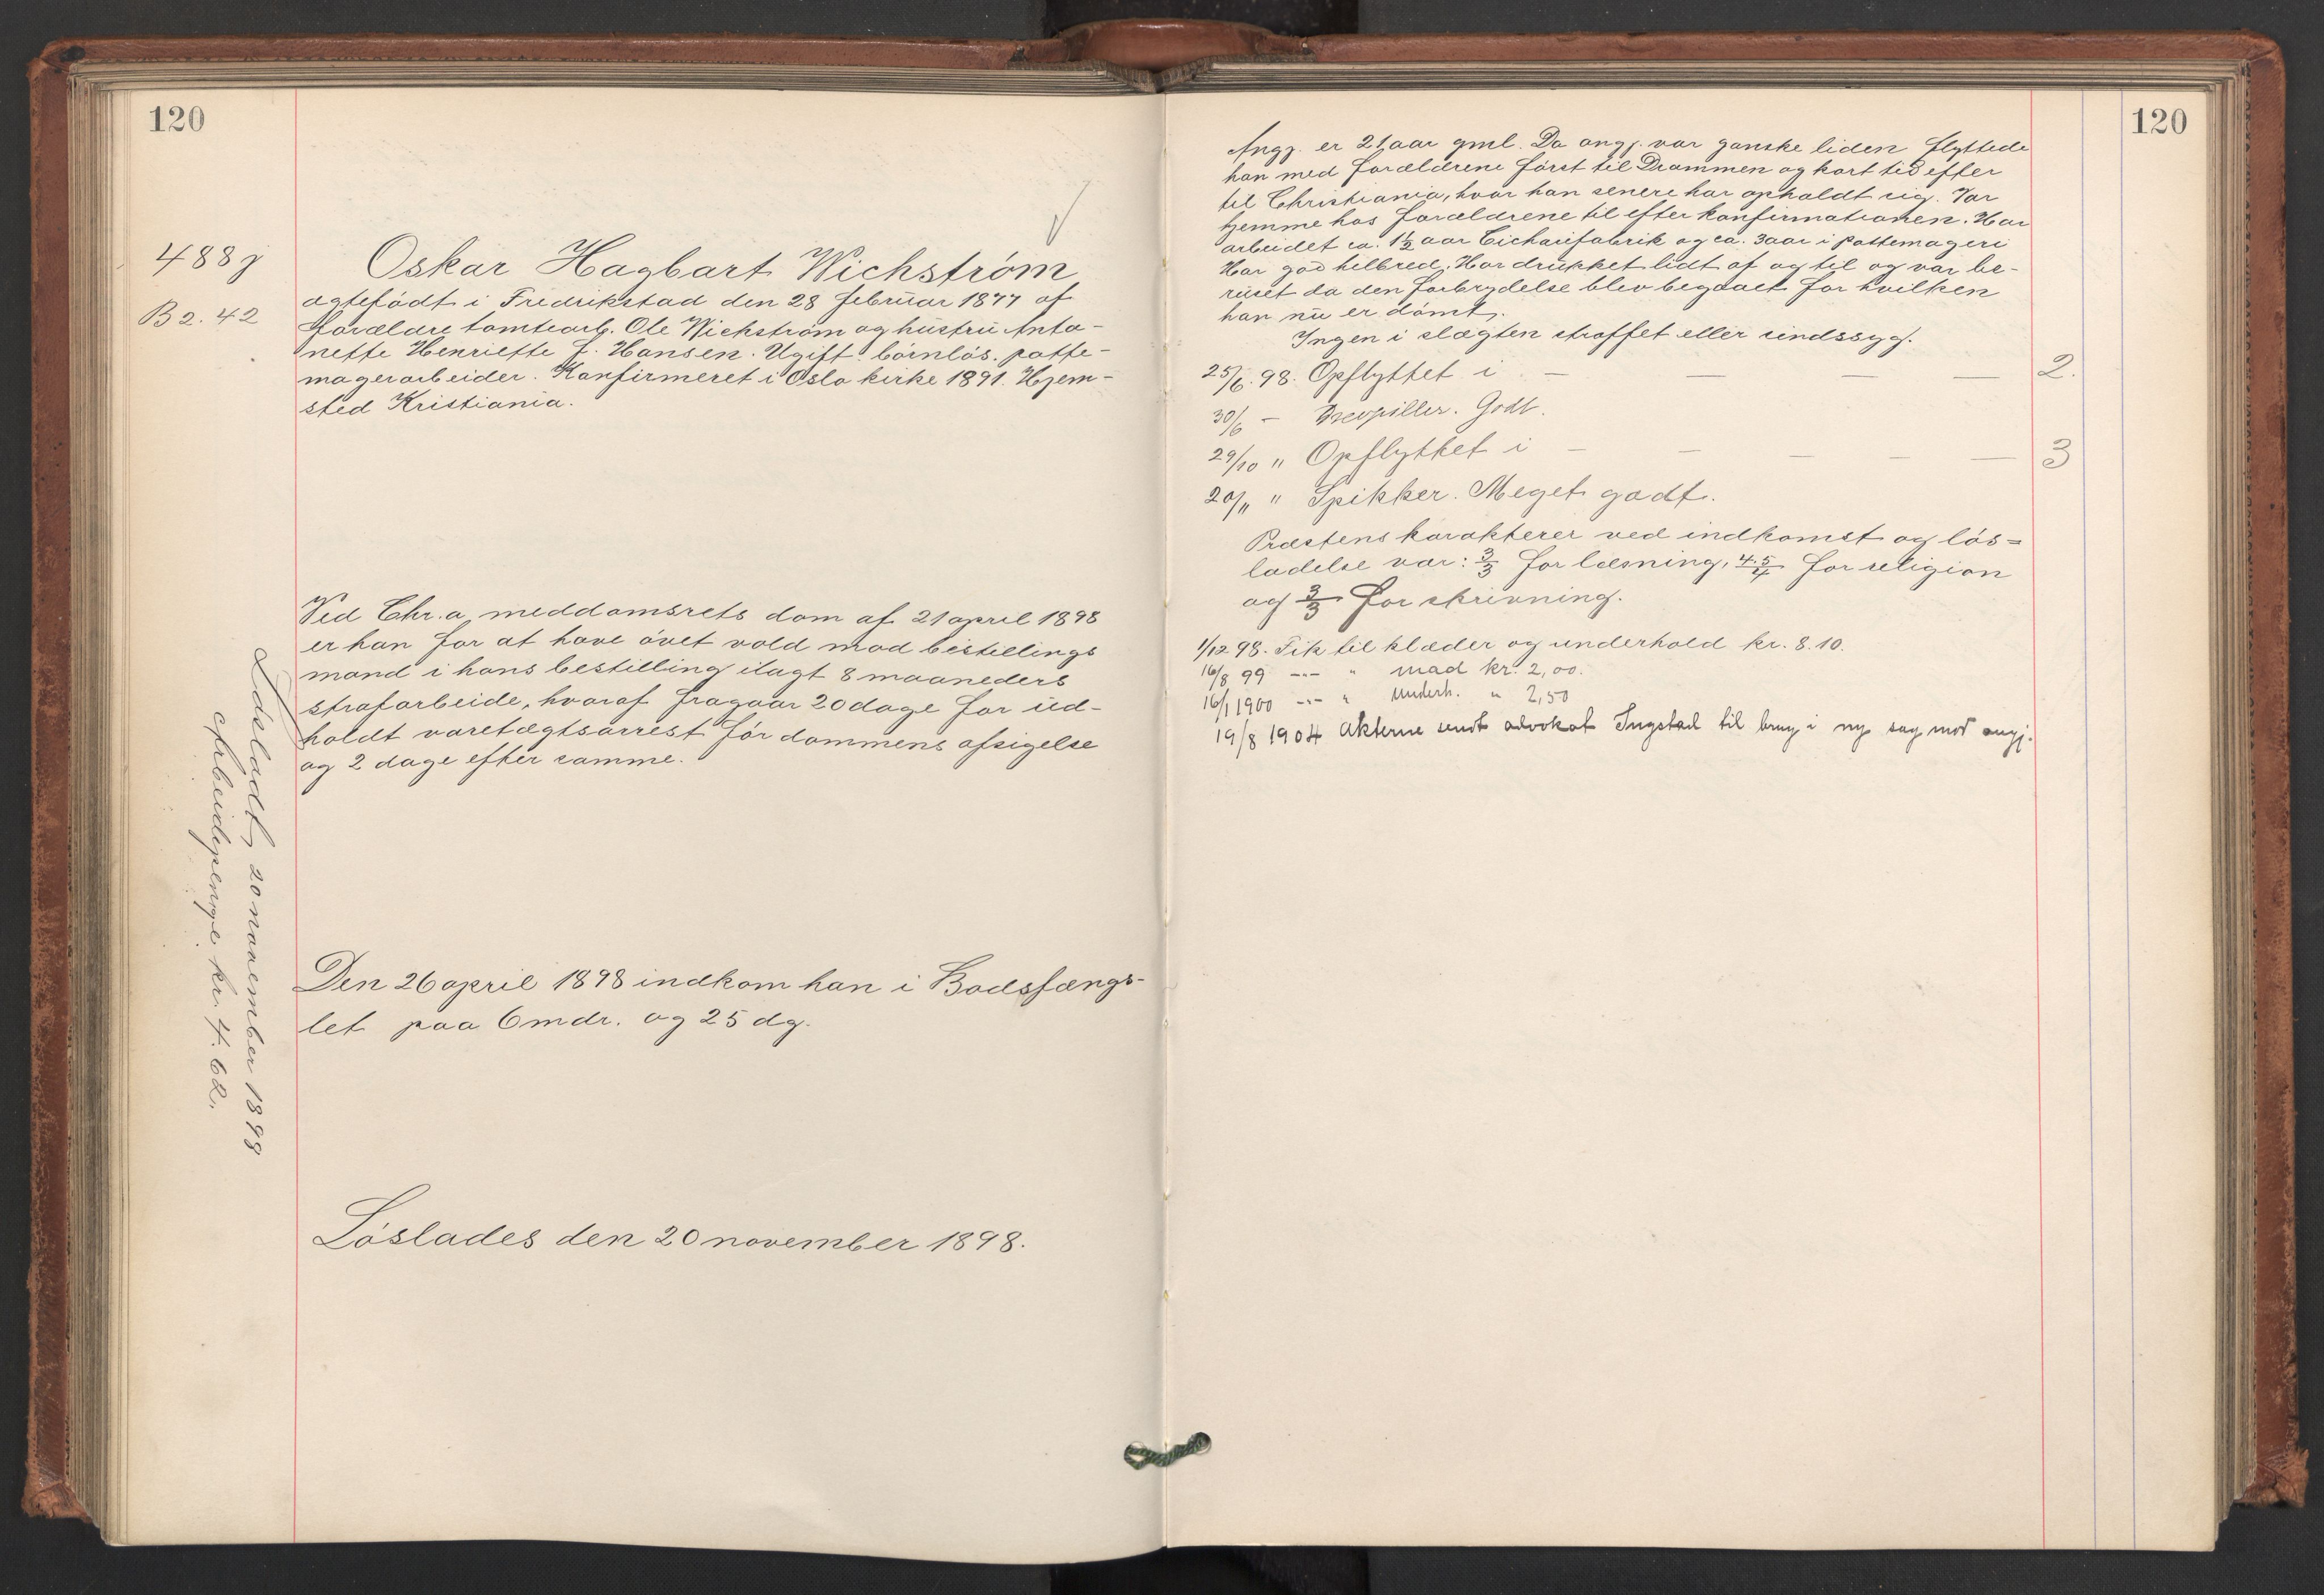 120
488 j
B 2. 42
Oskar Hagbart Wichström
ægtefödt i Fredrikstad den 28 februar 1877 af
forældre tomtearb. Ole Wichström og hustru Anto-
nette Henriette f. Hansen. Ugift. börnlös. potte-
magerarbeider. Konfirmeret i Oslo kirke 1891. Hjem-
sted Kristiania.
Ved Chr.a meddomsrets dom af 21 april 1898
er han for at have övet vold mod bestillings
mand i hans bestilling ilagt 8 maaneders
strafarbeide, hvoraf fragaar 20 dage for ud-
holdt varetægtsarrest för dommens afsigelse
og 2 dage efter samme.
Den 26 april 1898 indkom han i Bodsfængs-
let paa 6 mdr. og 25 dg.
Löslades den 20 november 1898.
Lösladt 20 november 1898
Arbeidspenge kr. 4.62.
120
Angj. er 21 aar gml. Da angj. var ganske liden flyttede
han med forældrene först til Drammen og kort tid efter
til Christiania, hvor han senere har opholdt sig. Var
hjemme hos forældrene til efter konfirmationen. Har
arbeidet ca. 1½ aar Cichorifabrik og ca. 3 aar i pottemageri
Har god helbred. Har drukket lidt af og til og var be-
ruset da den forbrydelse blev begaaet for hvilken
han nu er dömt.
Ingen i slægten straffet eller sindssyg.
25/6. 98. Opflyttet i — — — — 2.
30/6 - Drevpiller. Godt.
29/10 " Opflyttet i — — — — — 3
20/11 " Spikker. Meget godt.
Præstens karakterer ved indkomst og lös=
ladelse var: 3/3 for læsning, 4.5/4 for religion
og 3/3 for skrivning.
1/12 98. Fik til klæder og underhold kr. 8.10.
16/8 99 -"- " mad kr. 2,00.
16/1 1900 -"- " Underh. " 2,50
19/8 1904 Akterne sendt advokat Ingstad til brug i ny sag mod angj.